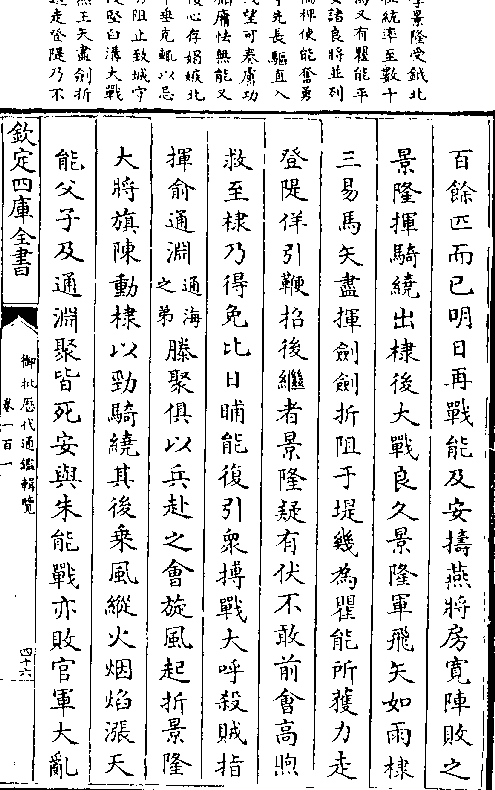 李景隆受鉞北
統率至數十
為又有瞿能平
安諸良將並列
裨使能奮勇
先長驅直入
望可奏膚功
庸怯無能又
心存媢嫉北
垂克輒以忌
阻止致城守
堅白溝大戰
燕王矢盡劍折
走登隄乃不
百餘匹而已明日再戰能及安擣燕將房寬陣敗之
景隆揮騎繞出棣後大戰良久景隆軍飛矢如雨棣
三易馬矢盡揮劍劍折阻于堤幾為瞿能所獲力走
登隄佯引鞭招後繼者景隆疑有伏不敢前會高煦
救至棣乃得免比日晡能復引衆搏戰大呼殺賊指
揮俞通淵通海之弟滕聚俱以兵赴之會旋風起折景隆
大將旗陳動棣以勁騎繞其後乗風縱火烟焰漲天
能父子及通淵聚皆死安與朱能戰亦敗官軍大亂
欽定四庫全書
御批歷代通鑑輯覽
卷一百一
四十六